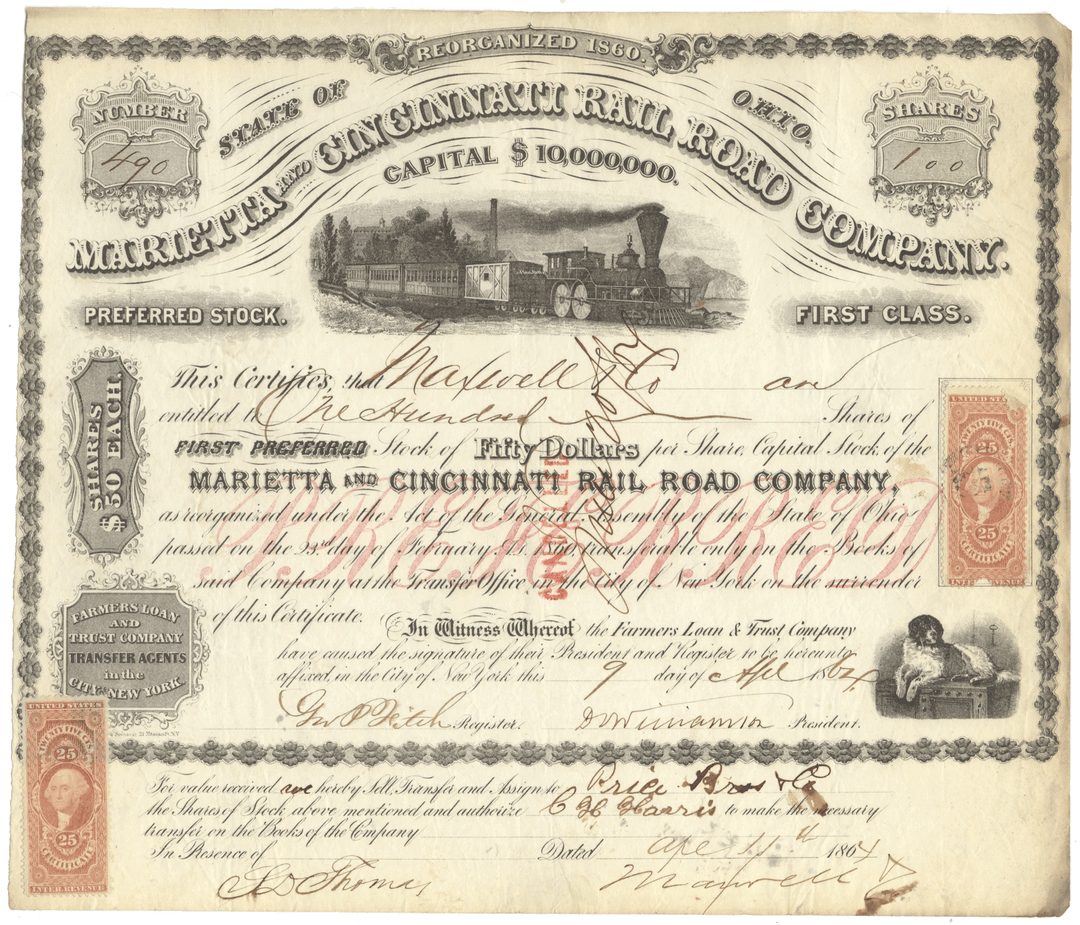 REORGANIZED 1860.
NUMBER
490
STATE OF OHIO.
SHARES
100
MARIETTA AND CINCINNATI RAIL ROAD COMPANY.
CAPITAL $10,000,000.
PREFERRED STOCK.
FIRST CLASS.
SHARES $50 EACH.
This Certifies, that Maxwell & Co are
entitled to One Hundred Shares of
FIRST PREFERRED Stock of Fifty Dollars per Share, Capital Stock, of the
MARIETTA AND CINCINNATI RAIL ROAD COMPANY,
as reorganized under the Act of the General Assembly of the State of Ohio
passed on the 23rd day of February A.D. 1860, transferable only on the Books of
said Company at the Transfer Office, in the City of New York on the surrender
of this Certificate.
PREFERRED
CANCELLED
FARMERS LOAN
AND
TRUST COMPANY
TRANSFER AGENTS
in the
CITY OF NEW YORK.
In Witness Whereof the Farmers Loan & Trust Company
have caused the signature of their President and Register to be hereunto
affixed, in the City of New York this 9 day of Apl 1864
Register. D D Williamson President.
UNITED STATES
25
25
CERTIFICATE
INTER REVENUE
UNITED STATES
25
25
CERTIFICATE
INTER REVENUE
For value received we hereby Sell, Transfer and Assign to Price Bros & Co
the Shares of Stock above mentioned and authorize C H Harris to make the necessary
transfer on the Books of the Company
In Presence of Dated Apl 1864
S D Thomas Maxwell